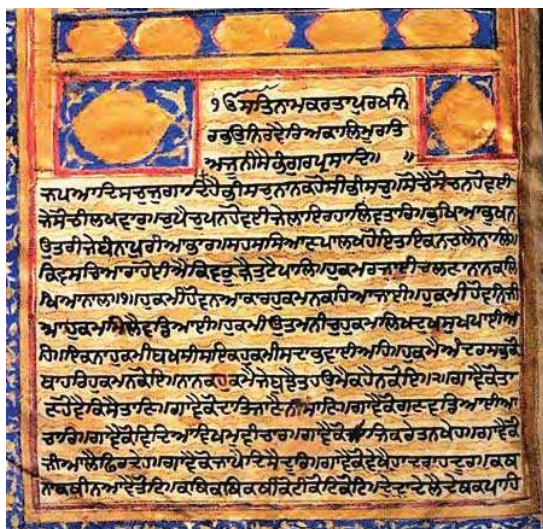 ੴਸਤਿਨਾਮਕਰਤਾਪੁਰਖਨਿ
ਰਭਉਨਿਰਵੈਰਿਅਕਾਲਿਮੂਰਤਿ
ਅਜੂਨੀਸੈਭੰਗੁਰਪ੍ਰਸਾਦਿ॥ ॥
ਜਪਆਦਿਸਚੁਜੁਗਾਦਿਹੈਭੀਸਚੁਨਾਨਕਹੋਸੀਭੀਸਚੁ॥ਸੋਚੈਸੋਚਨਹੋਵਈ
ਜੇਸੋਚੀਲਖਵਾਰ॥ਚੁਪੈਚੁਪਨਹੋਵਈਜੇਲਾਇਰਹਾਲਿਵਤਾਰ॥ਭੁਖਿਆਭੁਖਨ
ਉਤਰੀਜੇਬੰਨਾਪੁਰੀਆਭਾਰ॥ਸਹਸਸਿਆਣਪਾਲਖਹੋਇਤਾਇਕਨਚਲੈਨਾਲਿ॥
ਕਿਵਸਚਿਆਰਾਹੋਈਐਕਿਵਕੂੜੈਤੁਟੈਪਾਲਿ॥ਹੁਕਮਰਜਾਈਚਲਣਾਨਾਨਕਲਿ
ਖਿਆਨਾਲਿ॥੧॥ਹੁਕਮੀਹੋਵਨਆਕਾਰਹੁਕਮਨਕਹਿਆਜਾਈ॥ਹੁਕਮੀਹੋਵਨਿਜੀ
ਅਹੁਕਮਮਿਲੈਵਡਿਆਈ॥ਹੁਕਮੀਉਤਮਨੀਚੁਹੁਕਮਲਿਖਦੁਖਸੁਖਪਾਈਅ
ਹਿ॥ਇਕਨਾਹੁਕਮੀਬਖਸੀਸਇਕਹੁਕਮੀਸਦਾਭਵਾਈਅਹਿ॥ਹੁਕਮੈਅੰਦਰਸਭੁਕੋ
ਬਾਹਰਿਹੁਕਮਨਕੋਇ॥ਨਾਨਕਹੁਕਮੈਜੇਬੁਝੈਤਹਉਮੈਕਹੈਨਕੋਇ॥੨॥ਗਾਵੈਕੋਤਾ
ਣਹੋਵੈਕਿਸੈਤਾਣਿ॥ਗਾਵੈਕੋਦਾਤਿਜਾਣੈਨੀਸਾਣਿ॥ਗਾਵੈਕੋਗੁਣਵਡਿਆਈਆ
ਚਾਰ॥ਗਾਵੈਕੋਵਿਦਿਆਵਿਖਮਵੀਚਾਰ॥ਗਾਵੈਕੋਸਾਜਿਕਰੇਤਨਖੇਹ॥ਗਾਵੈਕੋ
ਜੀਅਲੈਫਿਰਦੇਹ॥ਗਾਵੈਕੋਜਾਪੈਦਿਸੈਦੂਰਿ॥ਗਾਵੈਕੋਵੇਖੈਹਾਦਰਾਹਦੂਰ॥ਕਥ
ਨਾਕਥੀਨਆਵੈਤੋਟਿ॥ਕਥਿਕਥਿਕਥੀਕੋਟੀਕੋਟਿਕੋਟਿ॥ਦੇਦਾਦੇਲੈਦੇਥਕਪਾਹਿ